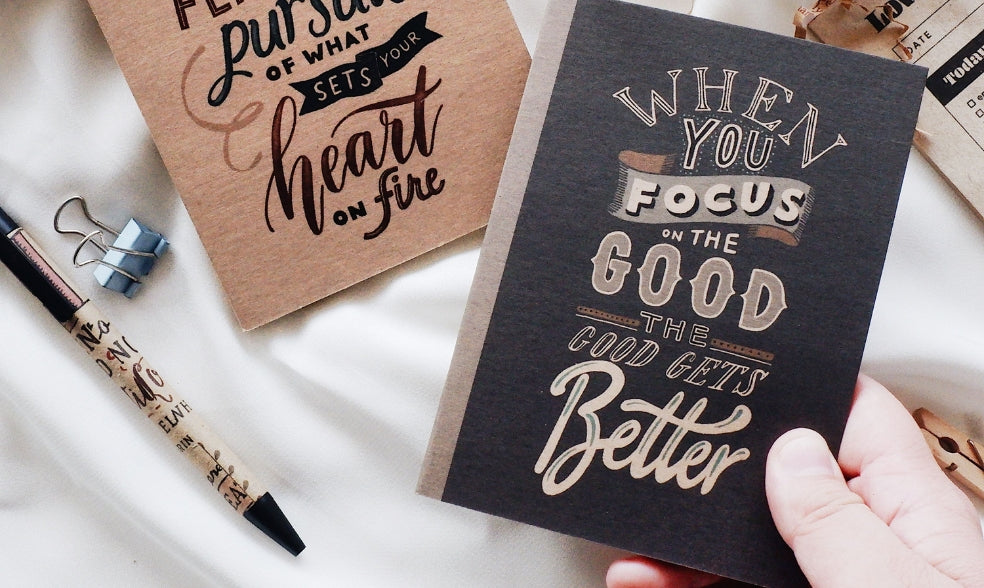 pursui
OF WHAT
SETS YOUR
heart
ON fire
WHEN
YOU
FOCUS
ON THE
GOOD
THE
GOOD GETS
Better
DATE
Today